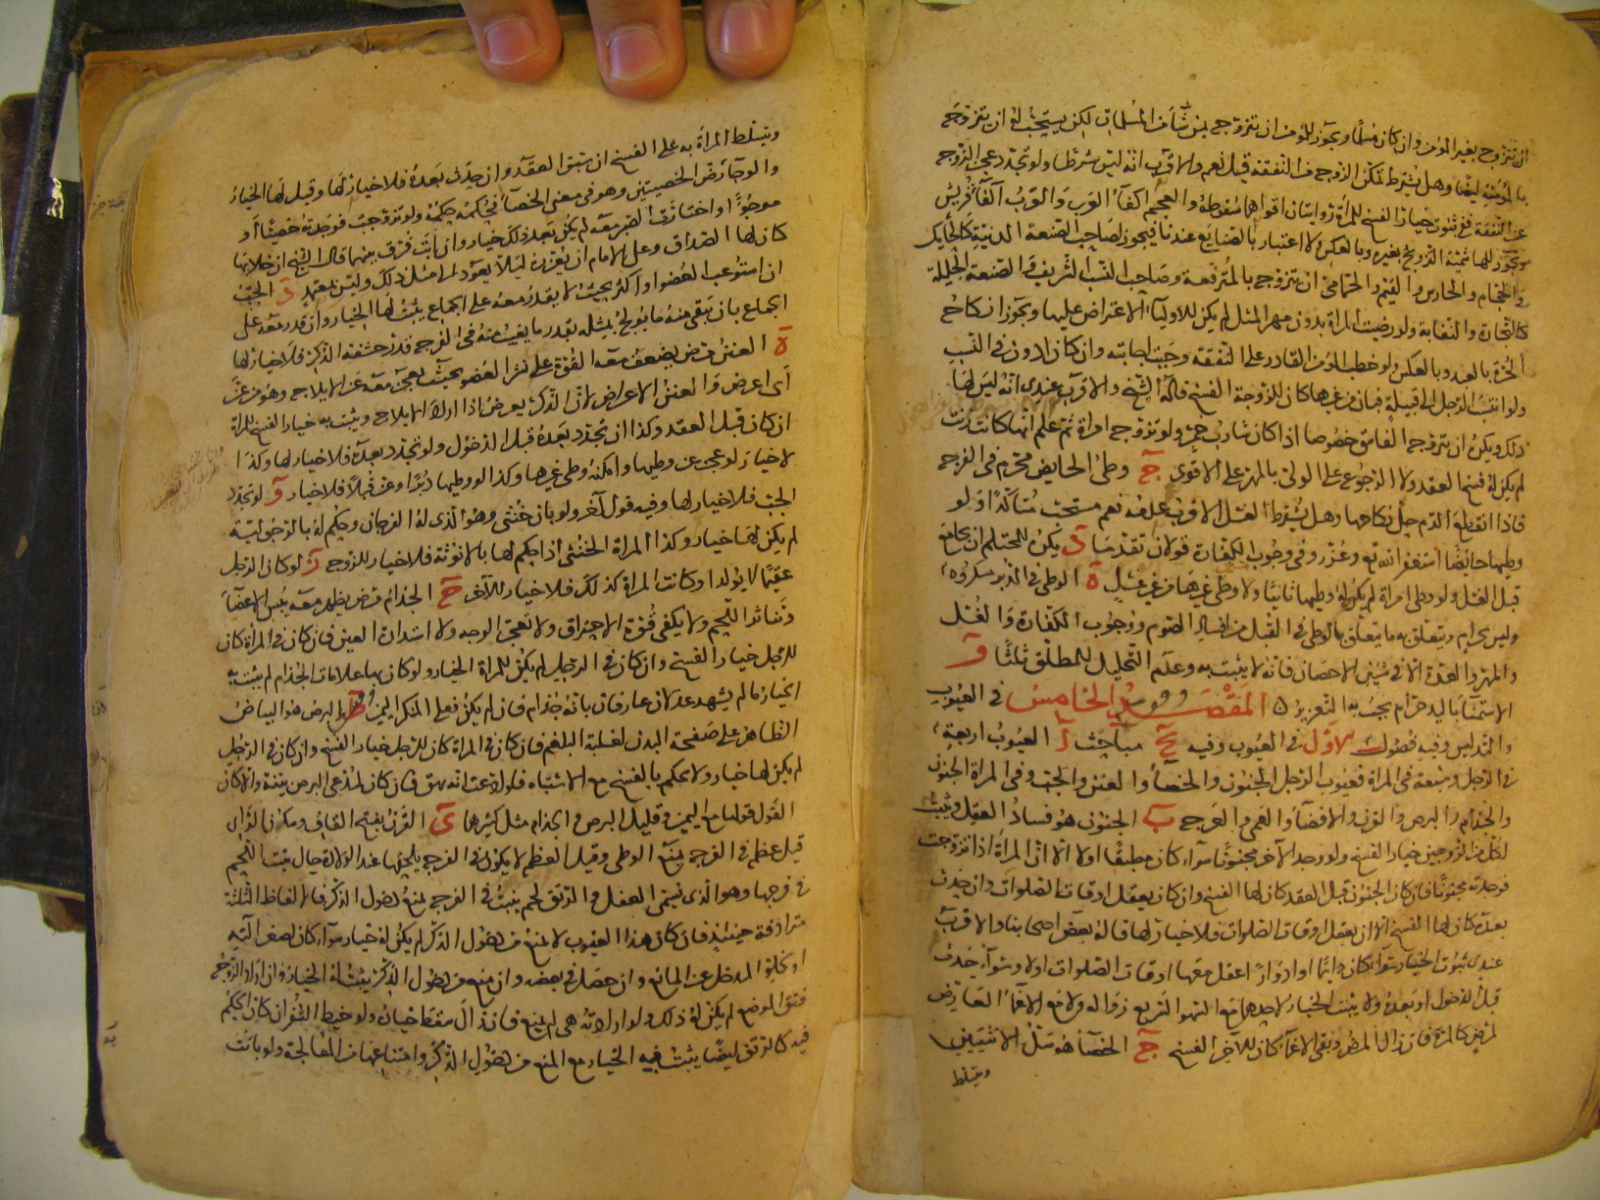 ان تتزوج بغير المؤمن وان كان مسلما ويجوز للمؤمن ان يتزوج بمن شاء من المسلمات لكن يستحب له ان يتزوج
بالمؤمنة ايضا وهل يشترط تمكن الزوج من النفقة قيل نعم والاقرب انه ليس شرطا ولو تجدد عجز الزوج
عن النفقة ففي ثبوت خيار الفسخ للمرأة روايتان اقواهما سقوطه والعجم اكفاء العرب والعرب اكفاء قريش
ويجوز للهاشمية التزويج بغيره وبالعكس لا اعتبار بالصنايع عندنا فيجوز لصاحب الصنعة الدنية كالحائك
والحجام والحارس والقيم والحمامي ان يتزوج بالمرتفعة وصاحب النسب الشريف والصنعة الجليلة
كالتجارة والنقابة ولو رضيت المرأة بدون مهر المثل لم يكن للاولياء الاعتراض عليها ويجوز انكاح
الحرة بالعبد وبالعكس ولو خطب المؤمن القادر على النفقة وجبت اجابته وان كان ادون في النسب
ولو انتسب الرجل الى قبيلة فبان من غيرها كان للزوجة الفسخ قاله الشيخ والاقرب عندي انه ليس لها
ذلك ويكره ان يتزوج الفاسق خصوصا اذا كان شارب خمر ولو تزوج امراة ثم علم انها كانت زنت
لم يكن له فسخ العقد ولا الرجوع على الولي بالمهر على الاقوى ج وطئ الحايض محرم في الفرج
فاذا انقطع الدم حل نكاحها وهل يشترط الغسل الاقرب عدمه نعم مستحب متأكد او لو
وطيها حايضا استغفر الله تع وعزر وفي وجوب الكفارة قولان تقدما د يكره للمحتلم ان يجامع
قبل الغسل ولو وطى امراة لم يكره له وطيها ثانيا ولا وطى غيرها من غير غسل ه الوطى في الدبر مكروه
وليس بحرام ويتعلق به ما يتعلق بالوطى في القبل من افساد الصوم ووجوب الكفارة والغسل
والمهر والعدة الا في شيئين الاحصان فانه لا يثبت به وعدم التحليل للمطلق ثلثا و
الاستمناء باليد حرام يجب به التعزير المقصد الخامس في العيوب
والتدليس وفيه فصول الاول في العيوب وفيه مباحث ا العيوب اربعة
في الرجل وسبعة في المراة فعيوب الرجل الجنون والخصاء والعنن والجب وفي المراة الجنون
والجذام والبرص والقرن والافضاء والعمى والعرج ب الجنون هو فساد العقل ويثبت
لكل من الزوجين خيار الفسخ ولو وجد الاخر مجنونا سواء كان مطبقا او لا الا ان المراة اذا تزوجت
فوجدته مجنونا فان كان الجنون قبل العقد كان لها الفسخ وان كان يعقل اوقات الصلوات وان حدث
بعده كان لها الفسخ الا ان يعقل اوقات الصلوات فلا خيار لها قاله بعض اصحابنا والاقرب
عندي ثبوت الخيار سواء كان دايما او ادوارا اعقل معها اوقات الصلوات او لا وسواء حدث
قبل الدخول او بعده ولا يثبت الخيار لاحدهما مع السهو السريع زواله ولا مع الاغماء العارض
لمرض كالمرة فان زال المرض وبقي الاغماء كان للاخر الفسخ ج الخصا هو سل الانثيين
ويتسلط
ويتسلط المرأة به على الفسخ ان سبق العقد وان حدث بعده فلا خيار لها وقيل لها الخيار
والوجاء رض الخصيتين وهو في معنى الخصاء فحكمه حكمه ولو تزوجت فوجدته خصيا او
موجوءا واختارت القبر معه لم يكن بعد ذلك خيار وان ابت فرق بينهما قال الشيخ ان خلا بها
كان لها الصداق وعلى الامام ان يعزره لئلا يعود لمثل ذلك وليس بمعتمد د الجب
ان استوعب العضو او اكثر بحيث لا يقدر معه على الجماع يثبت لها الخيار وان قدر معه على
الجماع بان يبقى منه ما يولج بمثله بقدر ما يغيب منه في الفرج قدر حشفة الذكر فلا خيار لها
ه العنن مرض يضعف معه القوة على نشر العضو بحيث يعجز معه عن الايلاج وهو من عن
اى اعرض والعنن الاعراض لان الذكر يعرض اذا اراد الايلاج ويثبت به خيار الفسخ للمراة
ان كان قبل العقد وكذا ان تجدد بعده قبل الدخول ولو تجدد بعده فلا خيار لها وكذا
لا خيار لو عجز عن وطيها وامكنه وطى غيرها وكذا لو وطيها دبرا وعن قبلا فلا خيار و لو تجدد
الجب فلا خيار لها وفيه قول آخر ولو بان خنثى وهو الذى له الفرجان وحكم له بالرجولية
لم يكن لها خيار وكذا المراة الخنثى اذا حكم لها بالانوثة فلا خيار للزوج ز لو كان الرجل
عقيما لا يولد او كانت المراة كذلك فلا خيار للآخر ح الجذام مرض يظهر معه يبس الاعضاء
وتناثر اللحم ولا يكفي قوة الاحتراق ولا تعجر الوجه ولا استدارة العين فان كان في المرأة كان
للرجل خيار الفسخ وان كان في الرجل لم يكن للمراة الخيار ولو كان بها علامات الجذام لم يثبت به
الخيار ما لم يشهد عدلان عارفان بانه جذام فان لم يكن فعلى المنكر اليمين ط البرص هو البياض
الظاهر على صفحة البدن لغلبة البلغم فان كان في المراة كان للرجل خيار الفسخ وان كان في الرجل
لم يكن لها خيار ولا يحكم بالفسخ مع الاشتباه فلو ادعت انه بهق فان كان لمدعي البرص بينة والا كان
القول قولها مع اليمين وقليل البرص والجذام مثل كثيرهما ي القرن بفتح القاف وسكون الراى
قيل عظم في الفرج يمنع الوطى وقيل العظم لا يكون في الفرج يلحقها عند الولادة حال ينبت اللحم
في فرجها وهو الذى يسمى العفل والرتق لحم ينبت في الفرج يمنع دخول الذكر فالالفاظ الثلثة
مترادفة حينئذ فان كان هذا العيوب لا يمنع من دخول الذكر لم يكن له خيار سواء كان لصغر آلته
او لخلو المدخل عن المانع وان حصل في بعضه وان منع من دخول الذكر يثبت له الخيار وان اراد الزوج
فتق الموضع لم يكن له ذلك ولو ارادته هي لم تمنع فان زال سقط خياره ولو خيط الشفران كان الحكم
فيه كالرتق ايضا يثبت فيه الخيار مع المنع من دخول الذكر وامتناعها من المعالجة ولو بانت